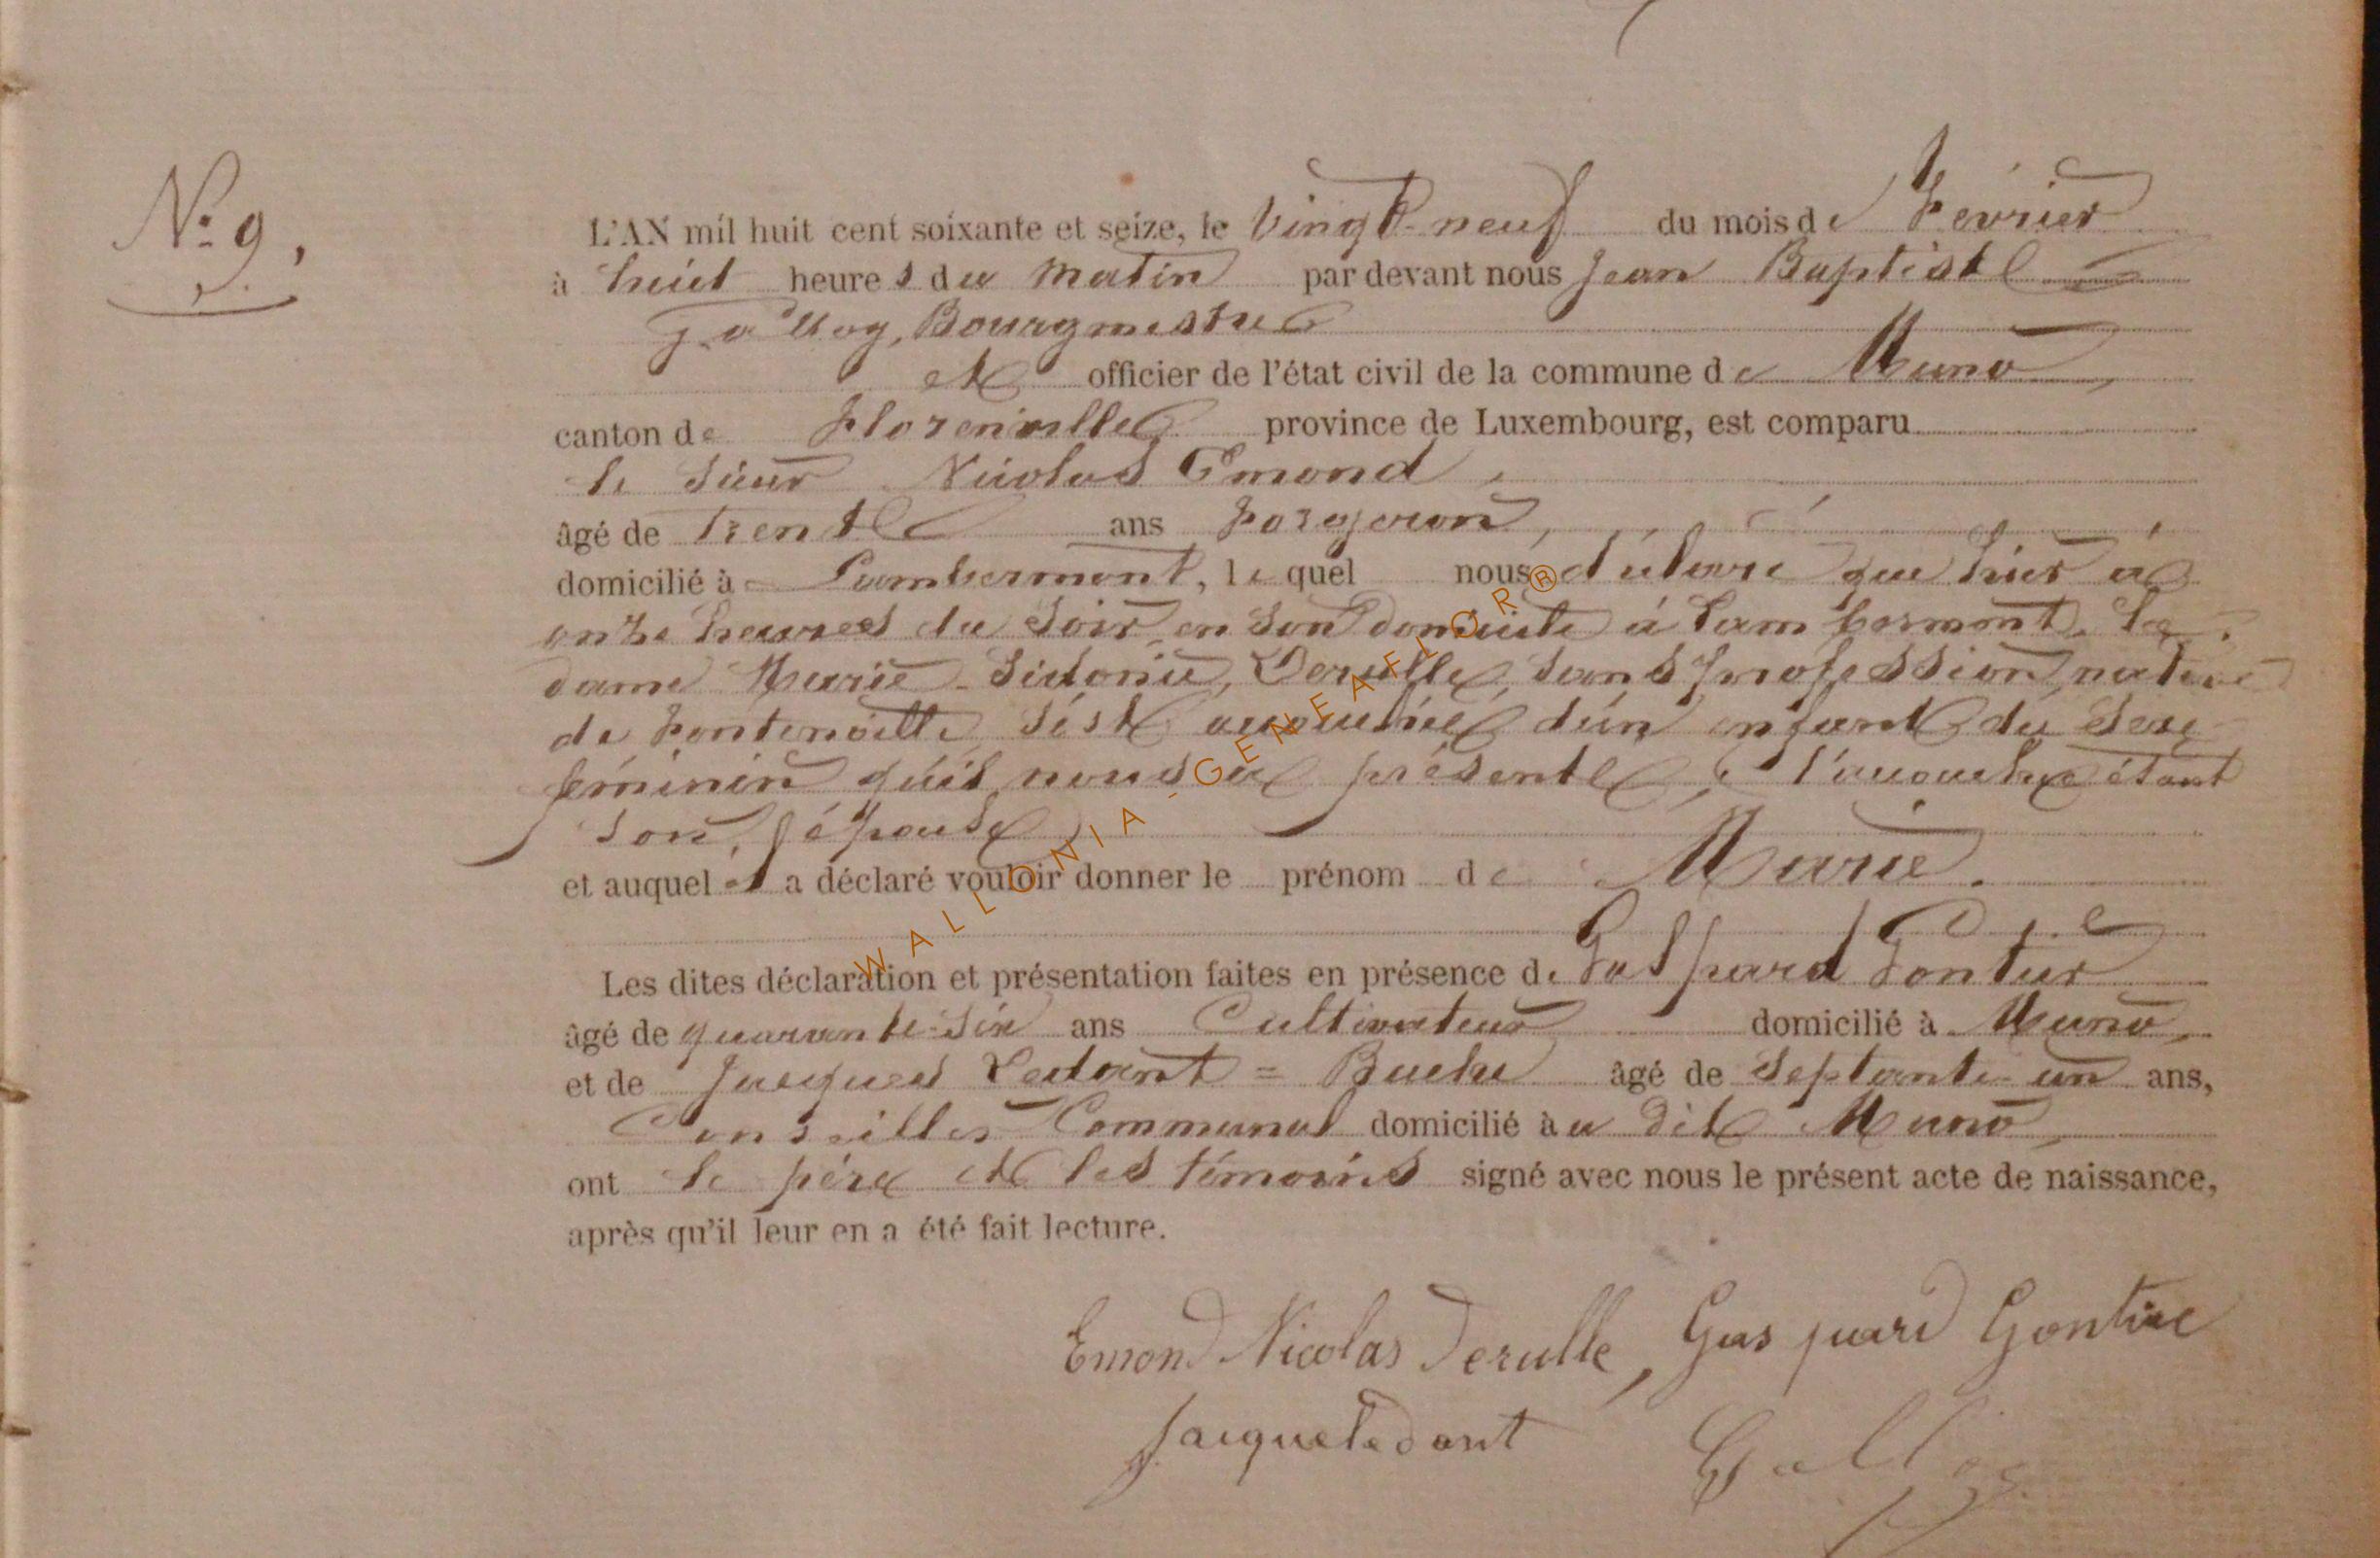 N° 9,
L'AN mil huit cent soixante et seize, le Vingt-neuf du mois de Février
à huit heures du Matin par devant nous Jean Baptiste
Galloy, Bourgmestre
et officier de l'état civil de la commune de Muno,
canton de Florenville province de Luxembourg, est comparu
le Sieur Nicolas Emond,
âgé de Trente ans Forgeron,
domicilié à Lambermont, lequel nous déclare que hier à
onze heures du Soir, en son domicile à Lambermont, la
dame Marie-Sidonie, Derulle, sans profession, native
de Fontenoille, s'est accouchée d'un enfant du Sexe
féminin qu'il nous a présenté, l'accouchée étant
son épouse
et auquel il a déclaré vouloir donner le prénom de Marie.
Les dites déclaration et présentation faites en présence de Gaspard Gontier
âgé de quarante-six ans Cultivateur domicilié à Muno,
et de Jacques Ledant = Buche âgé de Septante-un ans,
Conseiller Communal domicilié au dit Muno,
ont le père et les témoins signé avec nous le présent acte de naissance,
après qu'il leur en a été fait lecture.
Emond Nicolas Derulle, Gaspard Gontire
Jacque Ledant Galloy
WALLONIA-GENEAFLOR®